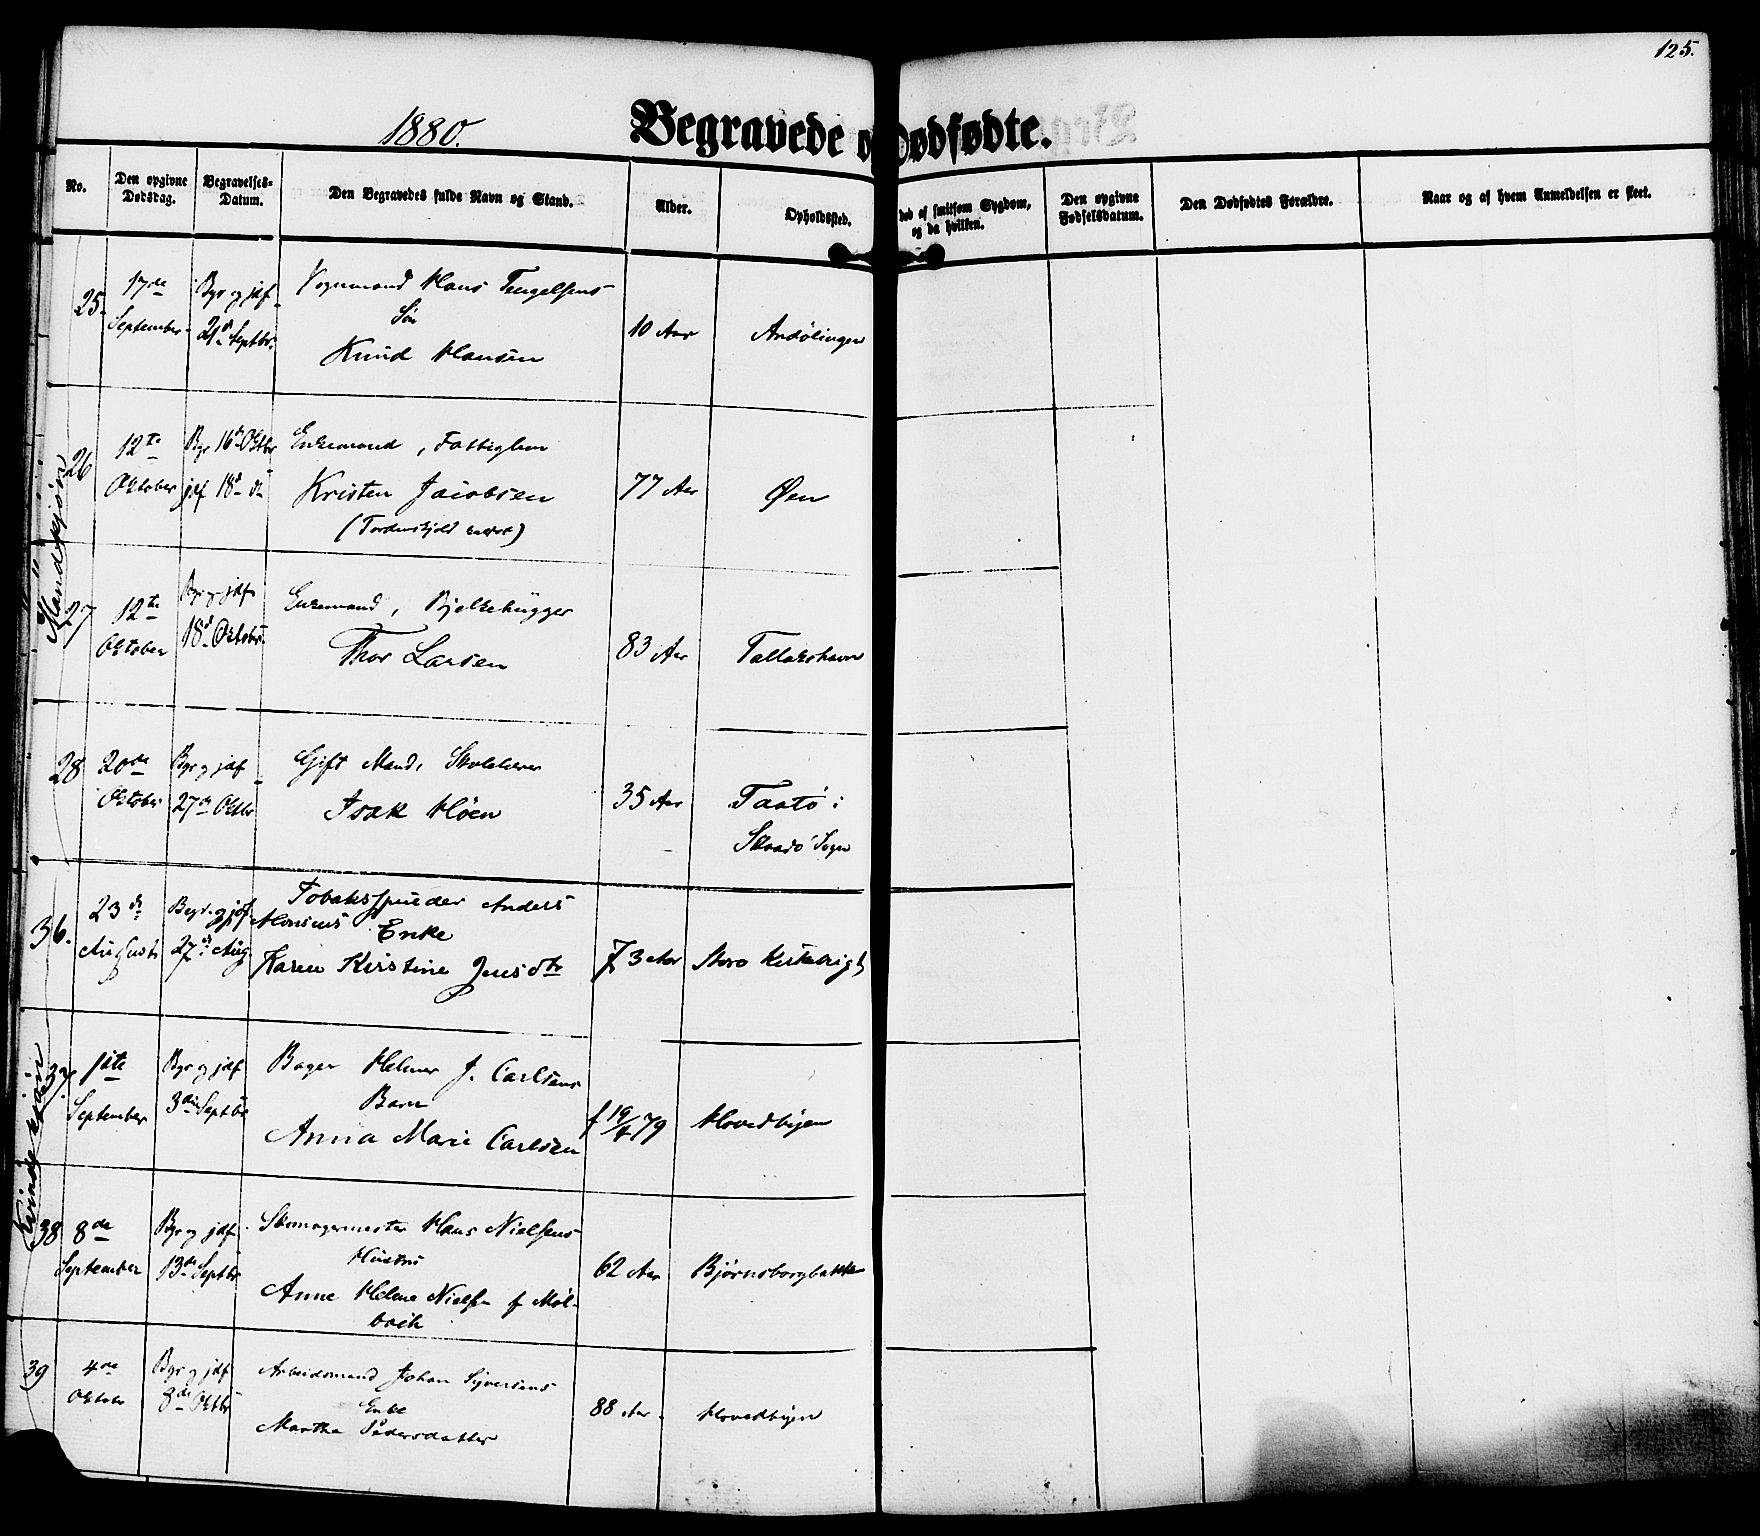 125.
1880.
Begravede o Dødfødte.
No.
Den opgivne Dødsdag.
Begravelses-Datum.
Den Begravedes fulde Navn og Stand.
Alder.
Opholdssted.
død af smitsom Sygdom, og da hvilken.
Den opgivne Fødselsdatum.
Den Dødfødtes Forældre.
Naar og af hvem Anmeldelsen er skeet.
Mandkjøn
25.
17de September
Bgr og jdf 21de Septbr.
Vognmand Hans Tengelsens
Søn
Knud Hansen
10 Aar
Andølingen
26
12te Oktober
Bgr 16de Oktbr jdf 18de
Enkemand, Fattiglem
Kristen Jacobsen
(Tordenskjold kaldet)
77 Aar
Øen
27
12te Oktober
Bgr og jdf 18de Oktobr.
Enkemand, Bjelkehugger
Thor Larsen
83 Aar
Tallakshavn
28
20de Oktober
Bgr og jdf 27de Oktbr
Gift Mand, Skolelærer
Isak Höen
35 Aar
Taatö i
Skaadö Sogn
36.
23de August
Begr. og jdf 27de Aug.
Tobaksspinder Anders
Monsens Enke
Karen Kirstine Jensdtr
73 Aar
Store Kirkebrigt
Kvindekjøn
37
1ste September
Bgr og jdf 3die Septbr
Bager Helmer J. Carlsens
Barn
Anna Marie Carlsen
f 19/4 79
Hovedbyen
38
8de September
Bgr og jdf. 13de Septbr
Skomagermester Hans Nielsens
Hustru
Anne Helene Nielsen f Møl-
bach
62 Aar
Bjørnsborgbakken
39
4de Oktober
Bgr og jdf 8de Oktbr
Arbeidsmand Johan Syversens
Enke
Marthe Pedersdatter
88 Aar.
Hovedbyen